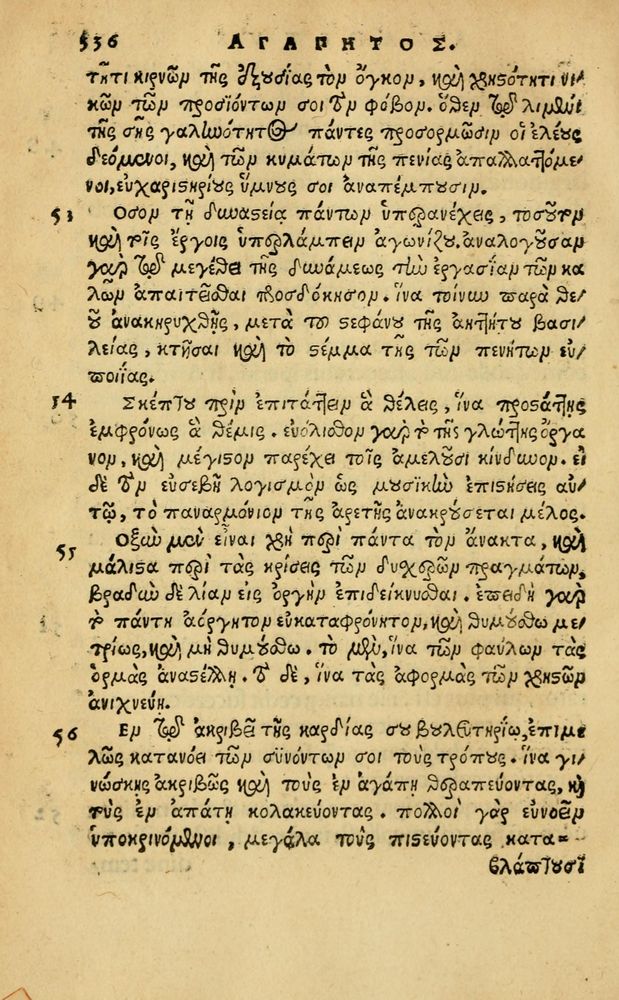 536 ΑΓΑΠΗΤΟΣ.
τητι κιρνῶν τῆς ἐξουσίας τὸν ὄγκον, καὶ χρηστότητι νι-
κῶν τῶν προσιόντων σοι τὸν φόβον. ὅθεν τῷ λιμένι
τῆς σῆς γαληνότητος πάντες προσορμῶσιν οἱ ἐλέους
δεόμενοι, καὶ τῶν κυμάτων τῆς πενίας ἀπαλλαττόμε-
νοι, εὐχαριστηρίους ὕμνους σοι ἀναπέμπουσιν.
53 Οσον τῇ δυναστείᾳ πάντων ὑπερανέχεις, τοσοῦτον
καὶ τοῖς ἔργοις ὑπερλάμπειν ἀγωνίζου. ἀναλογοῦσαν
γὰρ τῷ μεγέθει τῆς δυνάμεως τὴν ἐργασίαν τῶν κα
λῶν ἀπαιτεῖσθαι προσδόκησον. ἵνα τοίνυν παρὰ θε-
οῦ ἀνακηρυχθῇς, μετὰ τοῦ στεφάνου τῆς ἀηττήτου βασι-
λείας, κτῆσαι καὶ τὸ στέμμα τῆς τῶν πενήτων εὐ-
ποιΐας.
54 Σκέπτου πρὶν ἐπιτάττειν ἃ θέλεις, ἵνα προστάττῃς
ἐμφρόνως ἃ θέμις. εὐόλισθον γὰρ τὸ τῆς γλώττης ὄργα
νον, καὶ μέγιστον παρέχει τοῖς ἀμελοῦσι κίνδυνον. εἰ
δὲ τὸν εὐσεβῆ λογισμὸν ὡς μουσικὸν ἐπιστήσεις αὐ-
τῷ, τὸ παναρμόνιον τῆς ἀρετῆς ἀνακρούσεται μέλος.
55 Οξὺν μὲν εἶναι χρὴ περὶ πάντα τὸν ἄνακτα, καὶ
μάλιστα περὶ τὰς κρίσεις τῶν δυσχερῶν πραγμάτων,
βραδὺν δὲ λίαν εἰς ὀργὴν ἐπιδείκνυσθαι. ἐπειδὴ γὰρ
τὸ πάντη ἀόργητον εὐκαταφρόνητον, καὶ θυμούσθω με-
τρίως, καὶ μὴ θυμούσθω. τὸ μὲν, ἵνα τῶν φαύλων τὰς
ὁρμὰς ἀναστέλλῃ. τὸ δὲ, ἵνα τὰς ἀφορμὰς τῶν χρηστῶν
ἀνιχνεύῃ.
56 Εν τῷ ἀκριβεῖ τῆς καρδίας σου βουλευτηρίῳ, ἐπιμε
λῶς κατανόει τῶν συνόντων σοι τοὺς τρόπους. ἵνα γι-
νώσκῃς ἀκριβῶς καὶ τοὺς ἐν ἀγάπῃ θεραπεύοντας, καὶ
τοὺς ἐν ἀπάτῃ κολακεύοντας. πολλοὶ γὰρ εὐνοεῖν
ὑποκρινόμενοι, μεγάλα τοὺς πιστεύοντας κατα-
βλάπτουσι